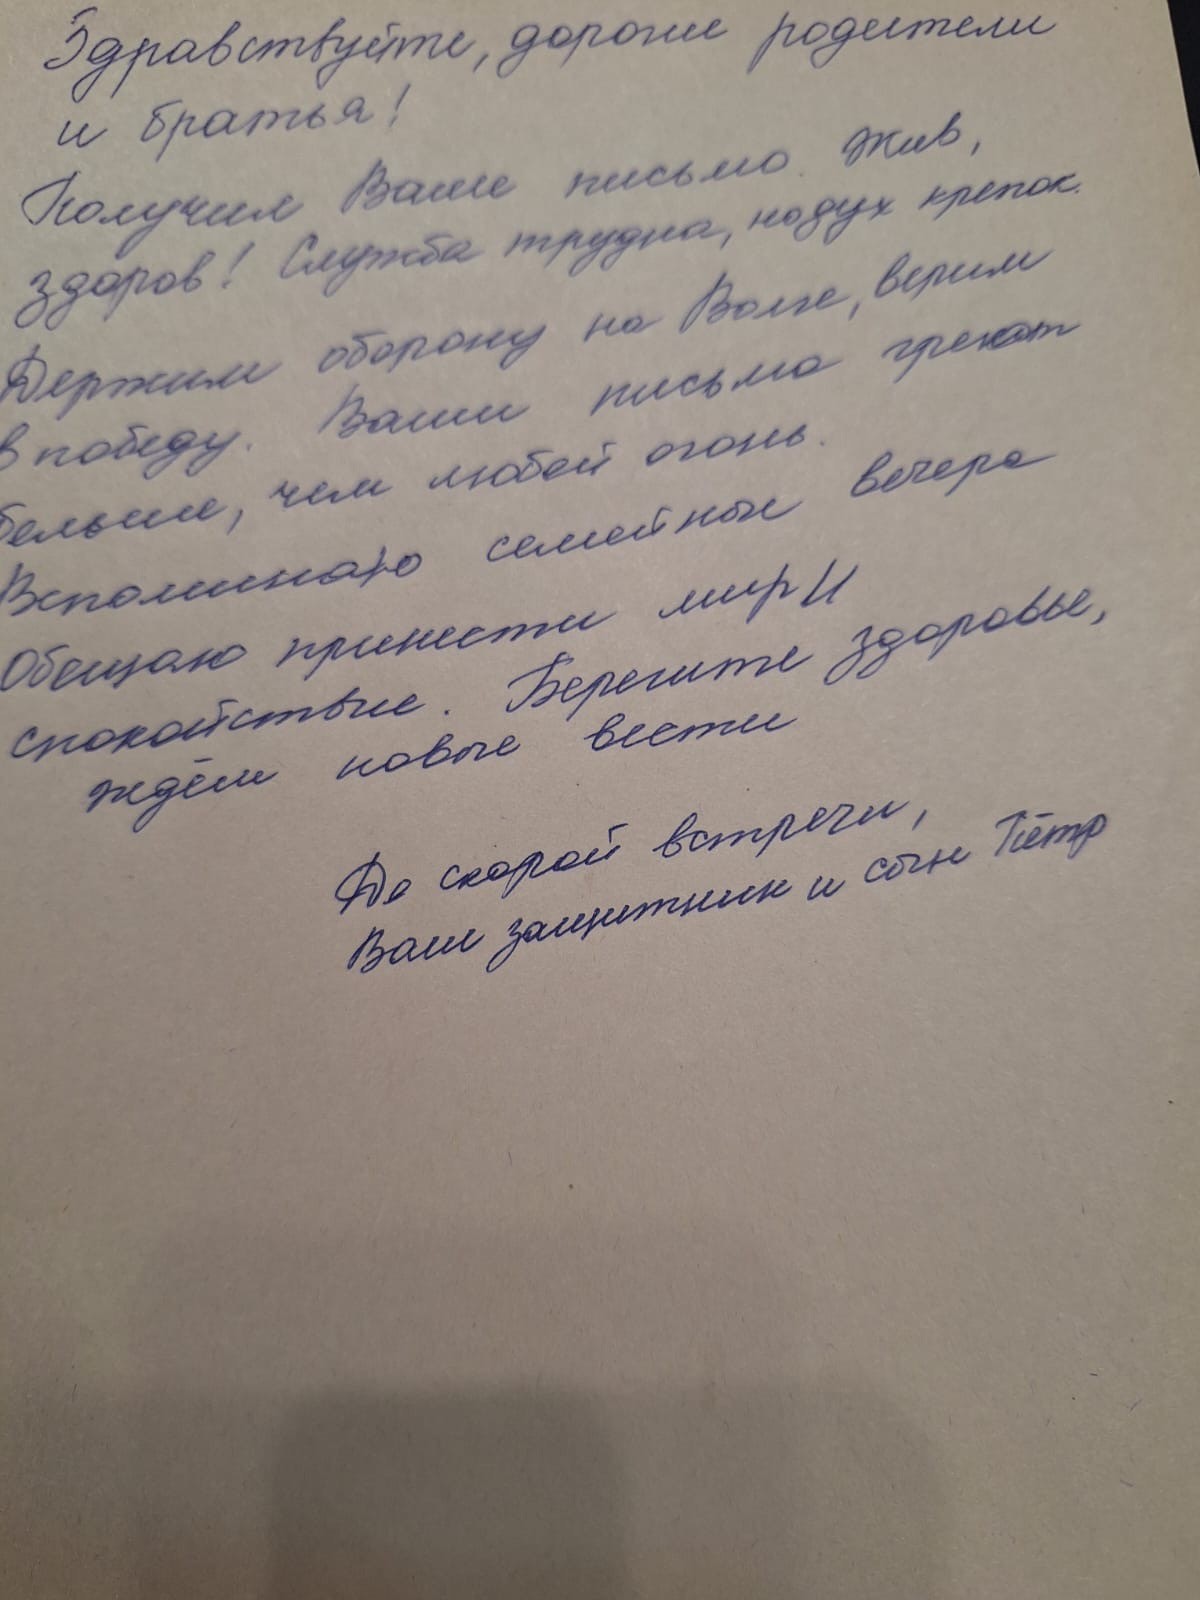 Здравствуйте, дорогие родители
и братья!
Получил Ваше письмо. Жив,
здоров! Служба трудна, но дух крепок.
Держим оборону на Волге, верим
в победу. Ваши письма греют
больше, чем любой огонь.
Вспоминаю семейные вечера
Обещаю принести мир и
спокойствие. Берегите здоровье,
ждём новые вести
До скорой встречи,
Ваш защитник и сын Пётр